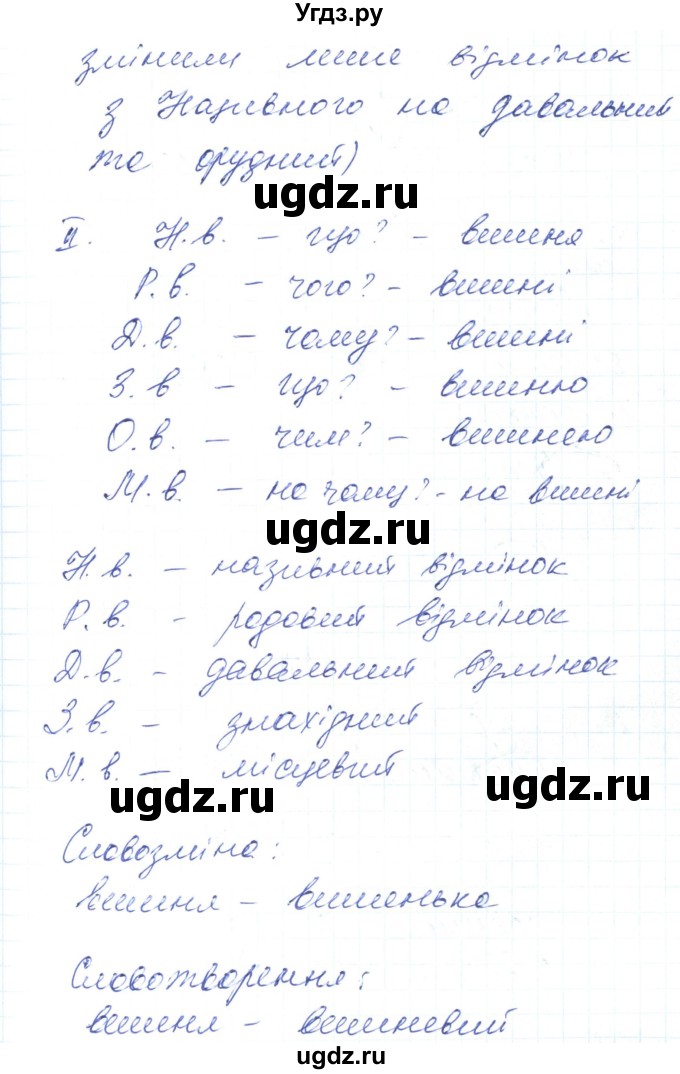 Угдз.ру
змінили лише відмінок
з Називного на давальний
та орудний)
ugdz.ru
II. Н.в. – що? – вишня
Р.в. – чого? – вишні
Д.в. – чому? – вишні
З.в – що? – вишню
О.в. – чим? – вишнею
М.в. – на чому? – на вишні
ugdz.ru
Н.в. – називний відмінок
Р.в. – родовий відмінок
Д.в. – давальний відмінок
З.в. – знахідний
М.в. – місцевий
ugdz.ru ugdz.ru
Словозміна:
вишня – вишенька
Словотворення:
вишня – вишневий
ugdz.ru